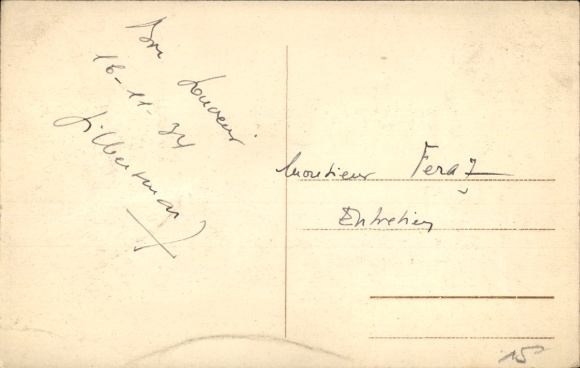 Bon Souvenir
16-11-34
Silberman
Monsieur Feraz
Entretien
15